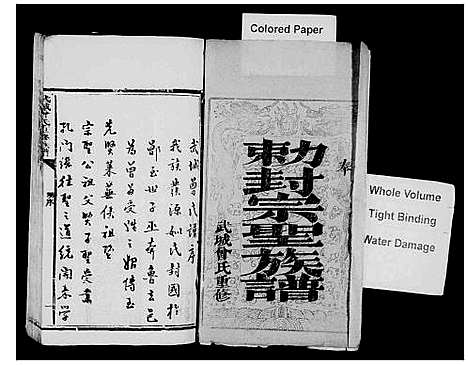 Colored Paper
Whole Volume
Tight Binding
Water Damage
奉
勅封宗聖族譜
武城曾氏重修
武城曾氏譜序
我族發源姒氏封國於
鄫至世子巫奔魯去邑
為曾曾受姓之始傳至
先賢萊蕪侯祖暨
宗聖公祖父賢子聖受業
孔門派往聖之道統開來學